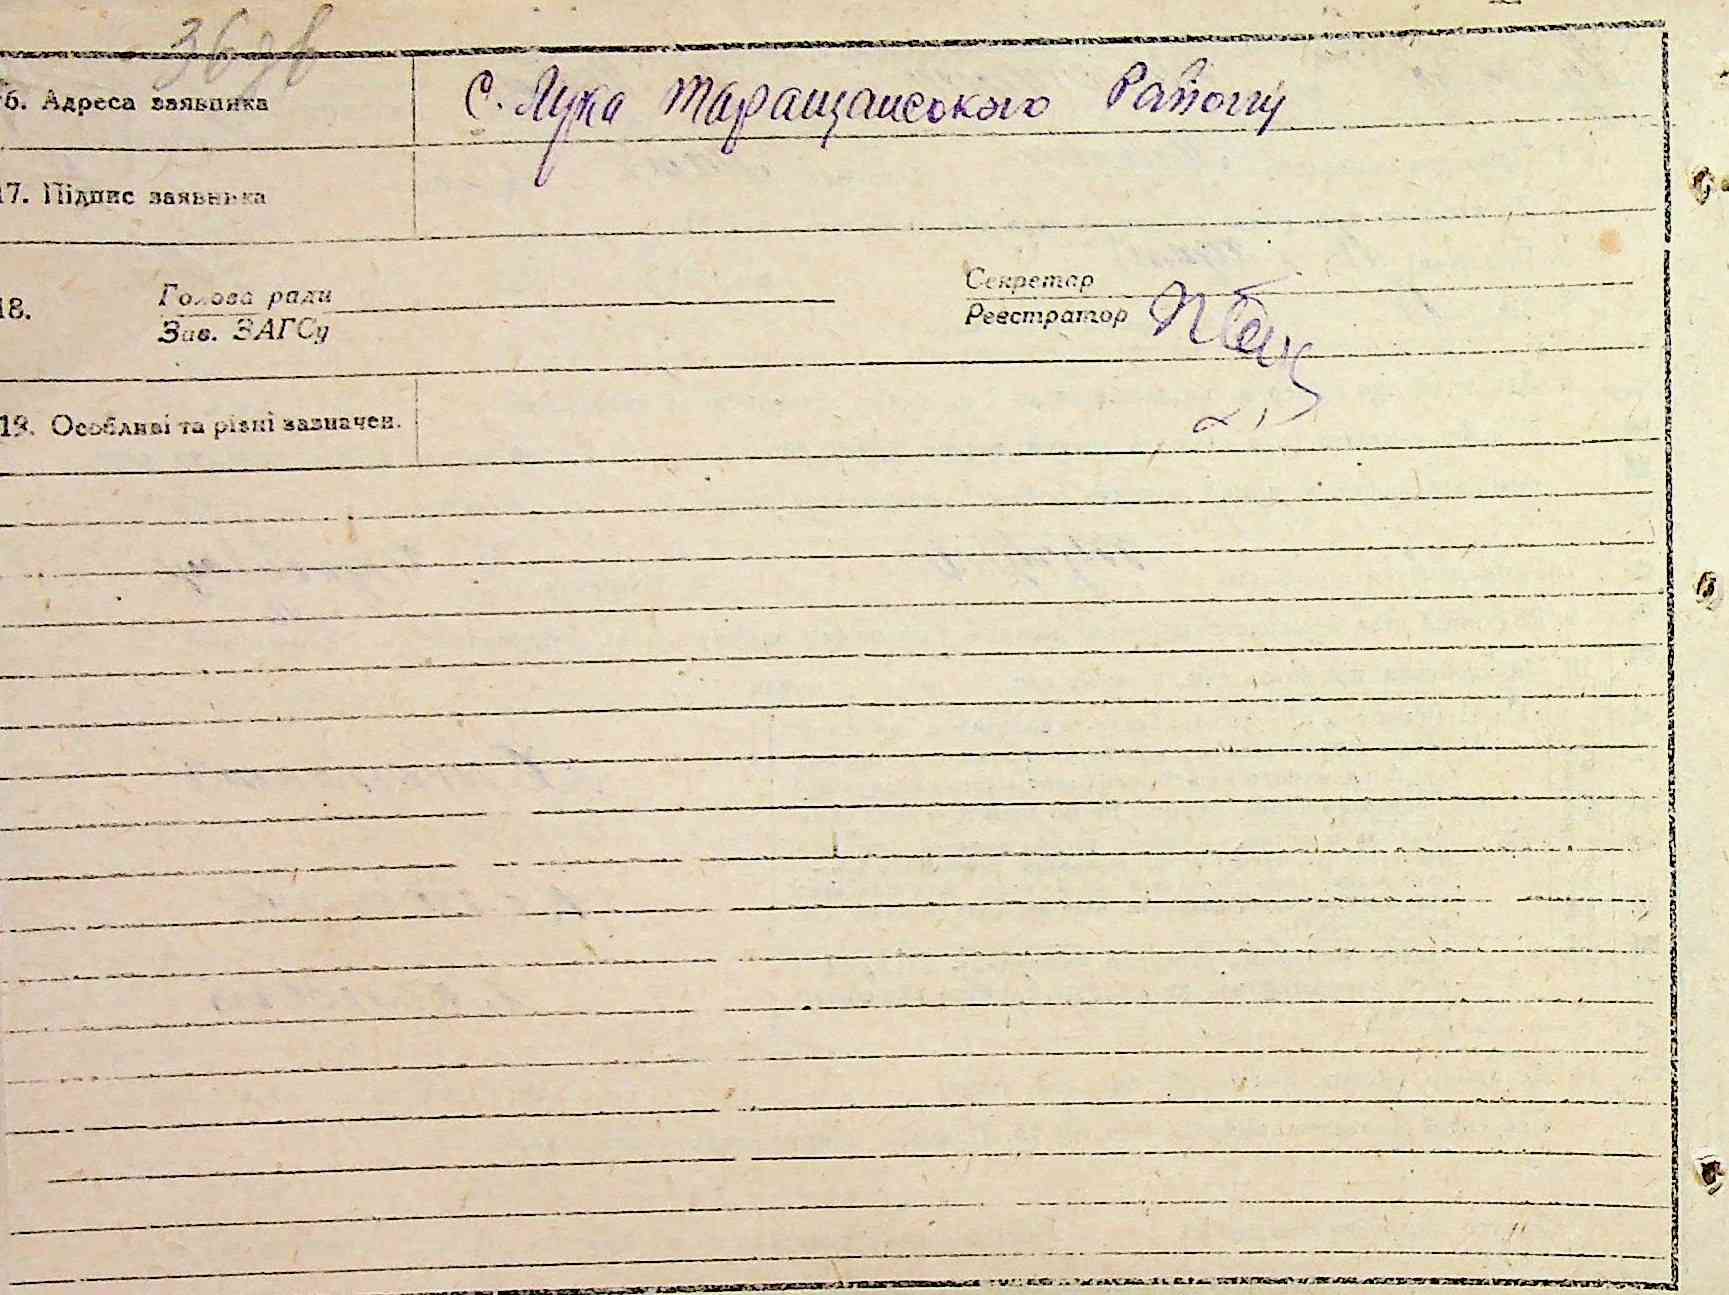 6. Адреса заявника С. Лука Таращанського Району
17. Підпис заявника
Секретар
18. Голова ради
Реєстратор
Зав. ЗАГСу
19. Особливі та різні зазначен.